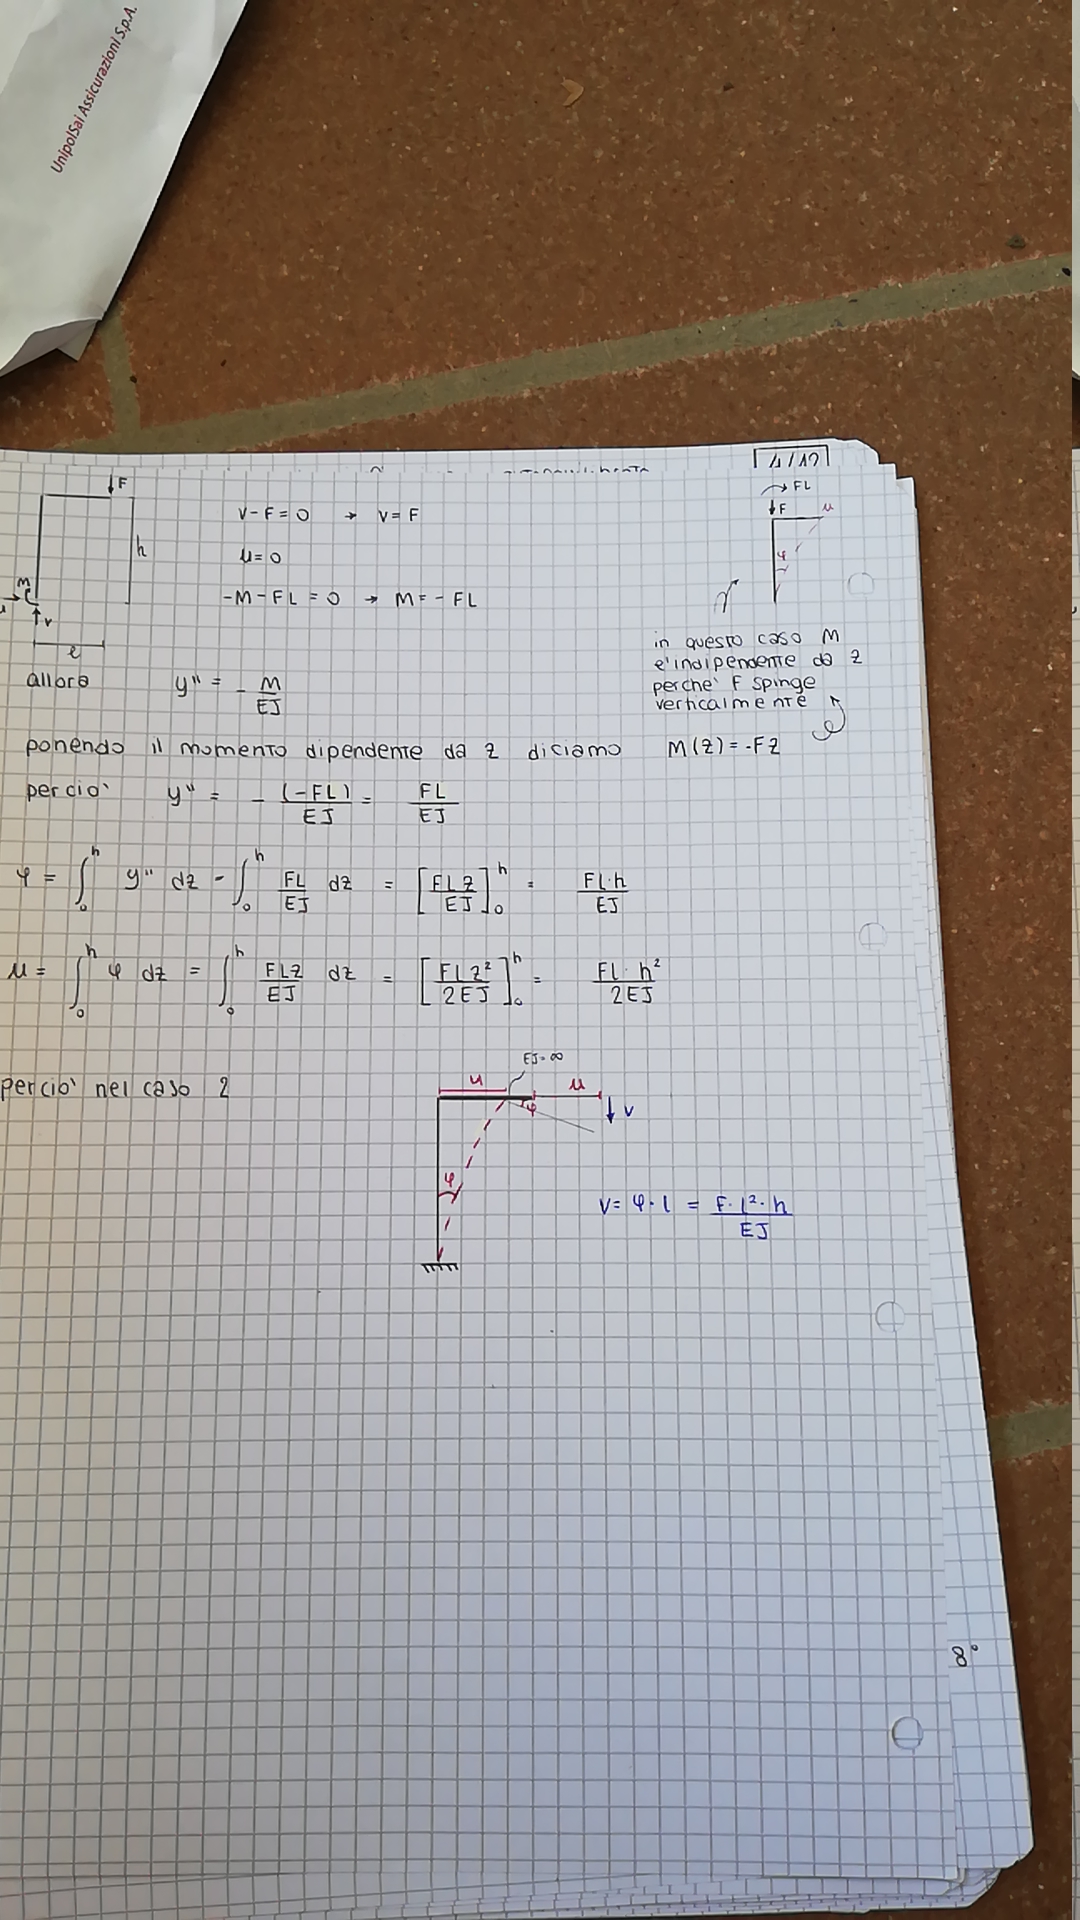 UnipolSai Assicurazioni S.p.A.
F
V - F = 0 → V = F
h
u = 0
M
- M - FL = 0 → M = - FL
V
l
FL
F
u
φ
in questo caso M
e' indipendente da z
perche' F spinge
verticalmente
allora y'' = - M/EJ
ponendo il momento dipendente da z diciamo M(z) = -Fz
percio' y'' = - (-FL)/EJ = FL/EJ
φ = ∫₀ʰ y'' dz - ∫₀ʰ FL/EJ dz = [FLz/EJ]₀ʰ = FL·h/EJ
u = ∫₀ʰ φ dz = ∫₀ʰ FLz/EJ dz = [FLz²/2EJ]₀ʰ = FL·h²/2EJ
EJ=∞
percio' nel caso 2
u
u
φ
V
φ
V = φ·l = F·l²·h/EJ
8°